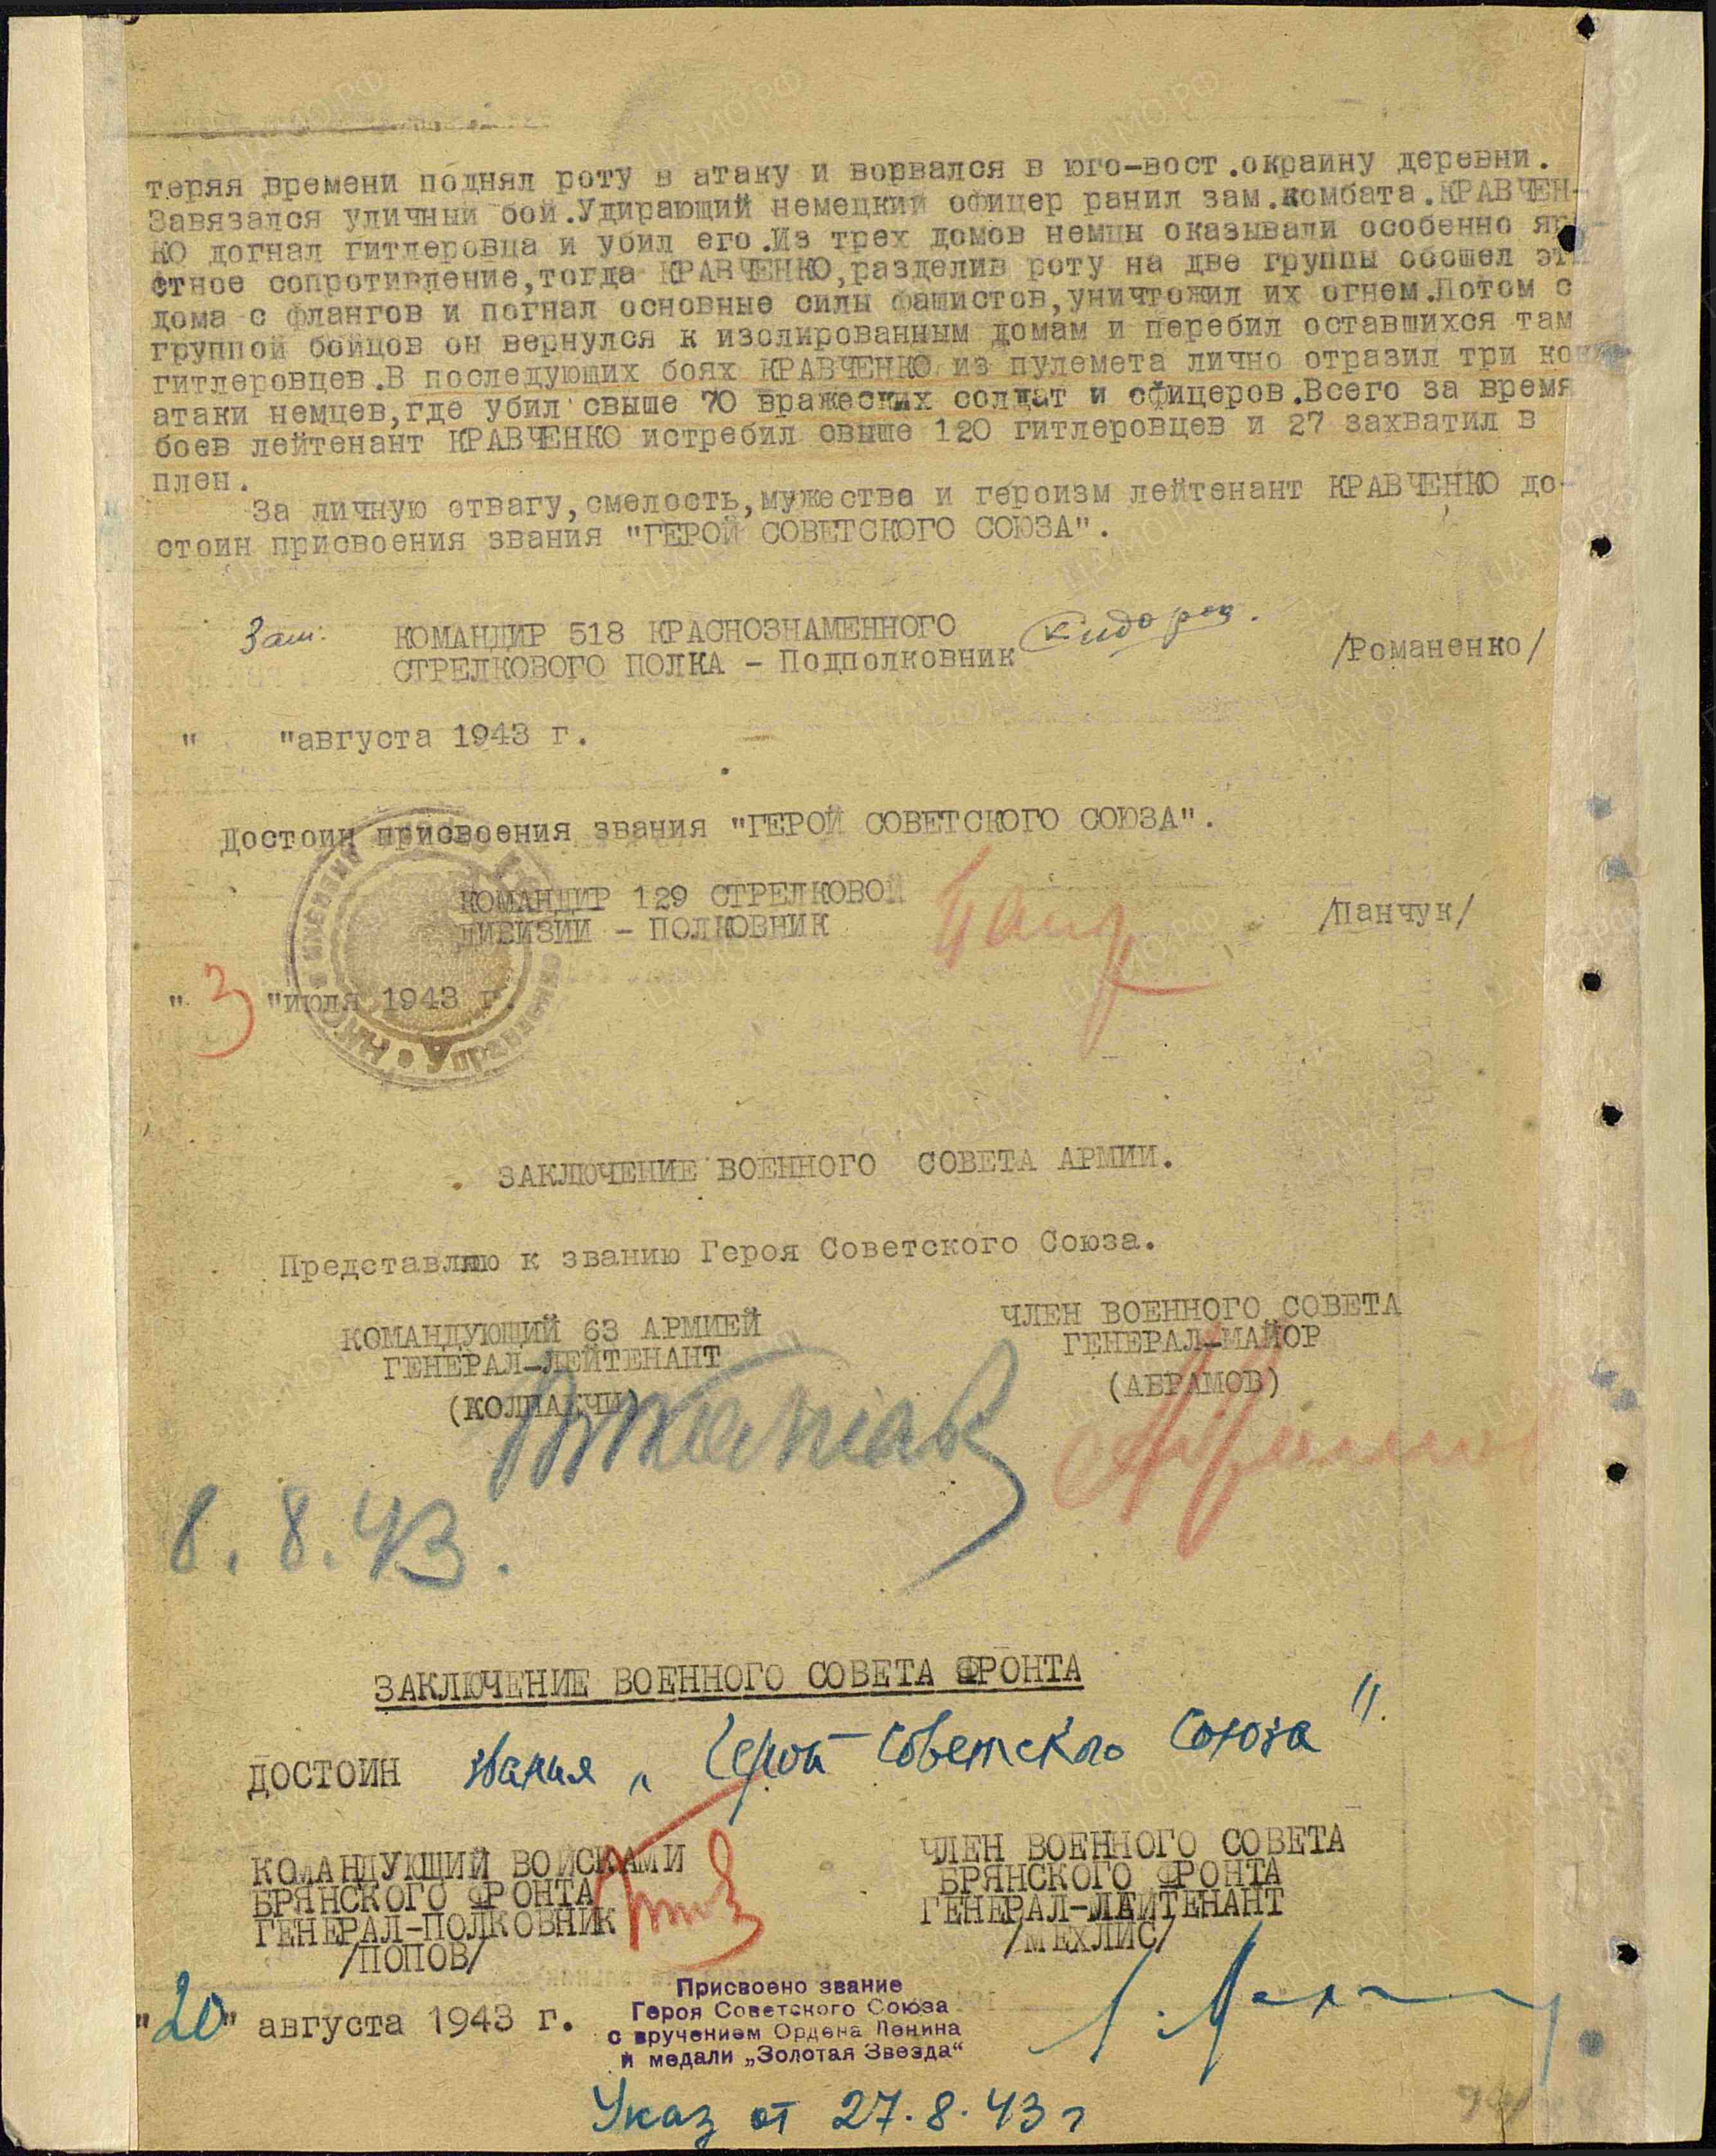 теряя времени поднял роту в атаку и ворвался в юго-вост.окраину деревни.
Завязался уличный бой.Удирающий немецкий офицер ранил зам.комбата.КРАВЧЕН-
КО догнал гитлеровца и убил его.Из трех домов немцы оказывали особенно
стное сопротивление,тогда КРАВЧЕНКО,разделив роту на две группы обошел
дома с флангов и погнал основные силы фашистов,уничтожил их огнем.Потом с
группой бойцов он вернулся к изолированным домам и перебил оставшихся там
гитлеровцев.В последующих боях КРАВЧЕНКО из пулемета лично отразил три
атаки немцев,где убил свыше 70 вражеских солдат и офицеров.Всего за время
боев лейтенант КРАВЧЕНКО истребил свыше 120 гитлеровцев и 27 захватил в
плен.
За личную отвагу,смелость,мужества и героизм лейтенант КРАВЧЕНКО до-
стоин присвоения звания "ГЕРОЙ СОВЕТСКОГО СОЮЗА".
КОМАНДИР 518 КРАСНОЗНАМЕННОГО
СТРЕЛКОВОГО ПОЛКА - Подполковник
/Романенко/
" "августа 1943 г.
Достоин присвоения звания "ГЕРОЙ СОВЕТСКОГО СОЮЗА".
КОМАНДИР 129 СТРЕЛКОВОЙ
ДИВИЗИИ - ПОЛКОВНИК
/Панчук/
" 3 "июля 1943 г.
Управление
ЗАКЛЮЧЕНИЕ ВОЕННОГО СОВЕТА АРМИИ.
Представляю к званию Героя Советского Союза.
КОМАНДУЮЩИЙ 63 АРМИЕЙ
ГЕНЕРАЛ-ЛЕЙТЕНАНТ
(КОЛПАКЧИ)
ЧЛЕН ВОЕННОГО СОВЕТА
ГЕНЕРАЛ-МАЙОР
(АБРАМОВ)
8.8.43.
ЗАКЛЮЧЕНИЕ ВОЕННОГО СОВЕТА ФРОНТА
ДОСТОИН звания „Герой Советского Союза".
КОМАНДУЮЩИЙ ВОЙСКАМИ
БРЯНСКОГО ФРОНТА
ГЕНЕРАЛ-ПОЛКОВНИК
/ПОПОВ/
ЧЛЕН ВОЕННОГО СОВЕТА
БРЯНСКОГО ФРОНТА
ГЕНЕРАЛ-ЛЕЙТЕНАНТ
/МЕХЛИС/
"20" августа 1943 г.
Присвоено звание
Героя Советского Союза
с вручением Ордена Ленина
и медали „Золотая Звезда“
Указ от 27.8.43 г